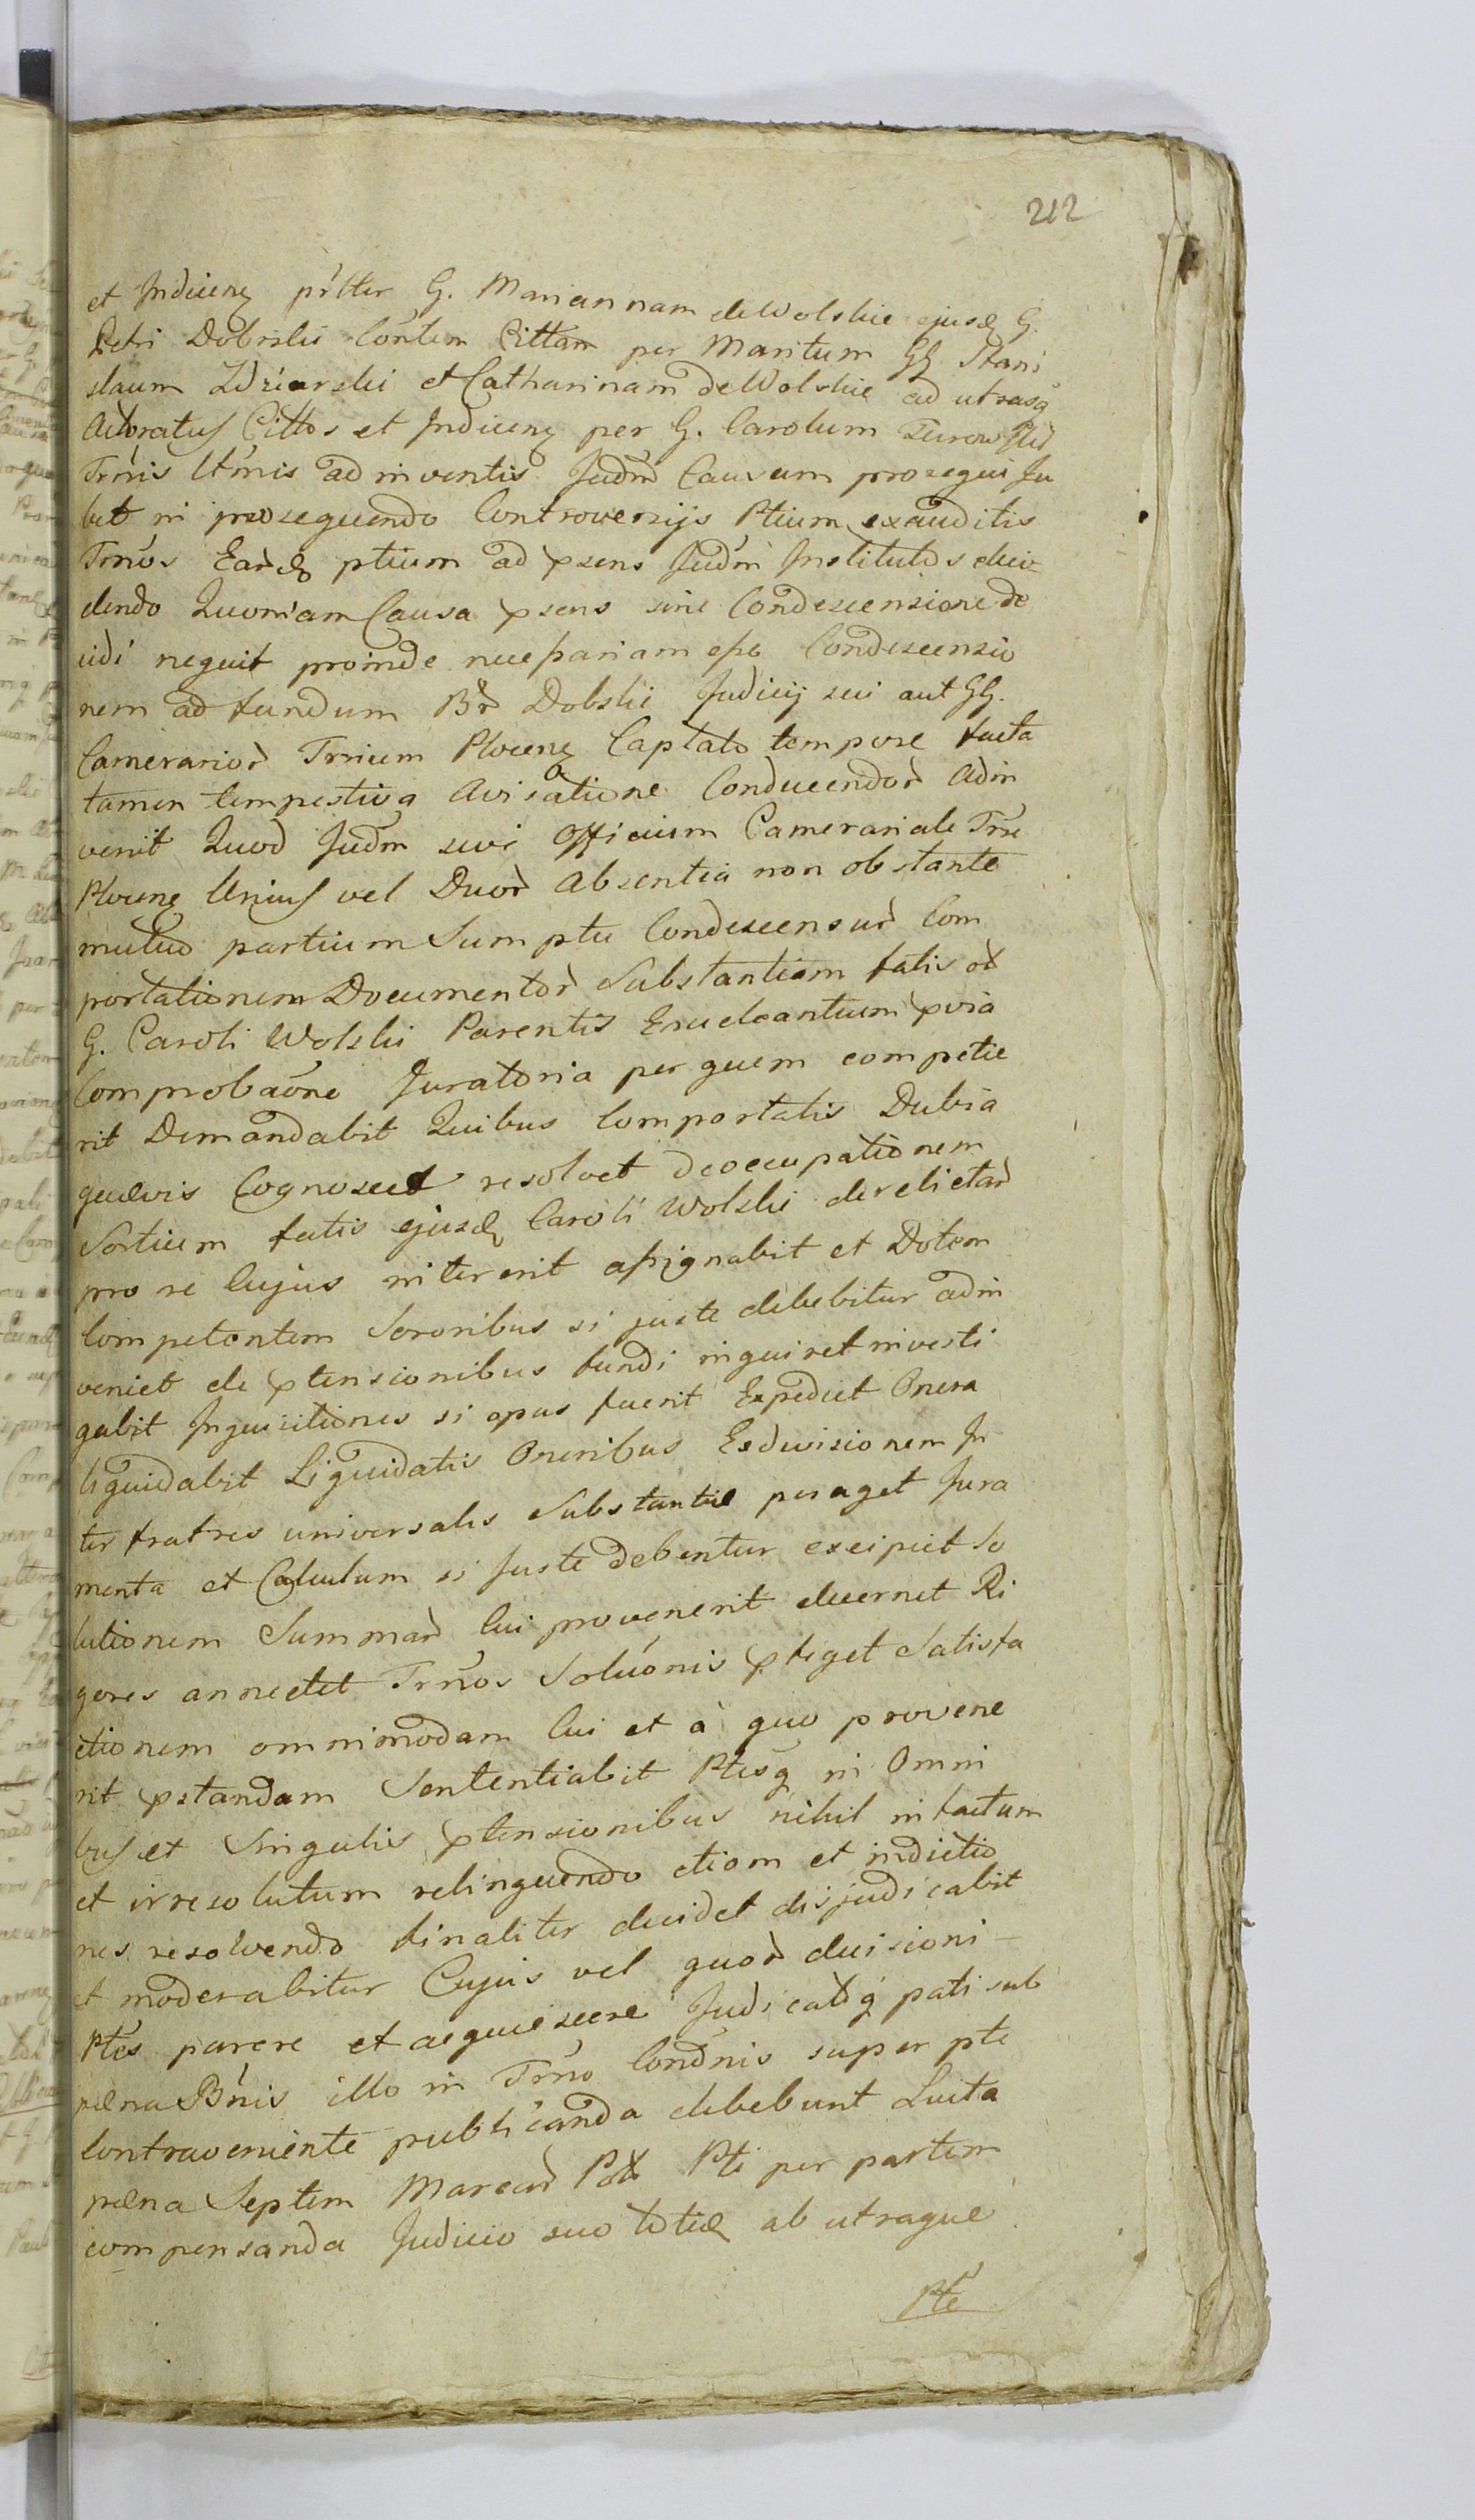 212
et Inducenꝫ pr̃tter G. Mariannam de Wolskie ejusꝺ G.
Petri Dobrski Con̄tem Cittam per Maritum GG Stani
slaum Zdziarski et Catharinam de Wolskie ad utrasq̃
Actoratus Cittos et Inducenꝫ per G. Carolum
Trm̃is ad inventis Jud̃m Causam prosequi Ju
bet in prosequendo Controversijs Ptium exauditis
Trños Earꝺꝫ ptium ad p̃sens Jud̃m Institutos deci-
dendo Quoniam Causa p̃sens sine Condescensione de
cidi nequit proinde necessariam esse Condescensio
nem ad fundum Br̃ Dobskie Judicij sui aut GG.
Camerarior̃ Trrium Plocenꝫ Captato tempore facta
tamen tempestiva Avisatione Conducendor̃ Adin
venit Quod Jud̃m sui Officium Camerariale Trr̃e
Plocenꝫ Unius vel Duor̃ Absentia non obstante
mutuo partium Sumptu Condescensur̃ Com
portationem Documentor̃ Substantiam fatis
G. Caroli Wolski Parentis Enucleantium p̃via
Comprobaõne Juratoria per quem competie
rit Demandabit Quibus Comportatis Dubia
quævis Cognoscet resolvet Deoccupationem
Sortium fatis ejusꝺ Caroli Wolski derelictar̃
pro re Cujus intererit assignabit et Dotem
Competentem Sororibus si juste debebitur adin
veniet de p̃tensionibus fundi inquiret investi
gabit Inquisitiones si opus fuerit Expediet Onera
liquidabit Liquidatis Oneribus Exdivisionem In
ter fratres universalis Substantiæ peraget Jura
menta et Calculum si Juste debentur excipiet So
lutionem Summar̃ Cui provenerit decernet Ri
gores annectet Trños Soluõnis p̃figet Satisfa
ctionem omnimodam Cui et à quo provene
rit p̃standam Sententiabit Ptesq̃ in Omni
bus et Singulis p̃tensionibus nihil infactum
et irresolutum relinquendo etiam et indictio
nes resolvendo finaliter decidet disjudicabit
et moderabitur Cujus vel quor̃ decisioni
Ptes parere et acquiescere Judicatq̃ pati sub
pæna Bñis illo in Trño Cond̃nis super pte
Contraveniente publicanda debebunt Luita
pæna Septem Marcar̃ Pti per partem
compensanda Judicio suo totieꝫ ab utraque
Pte